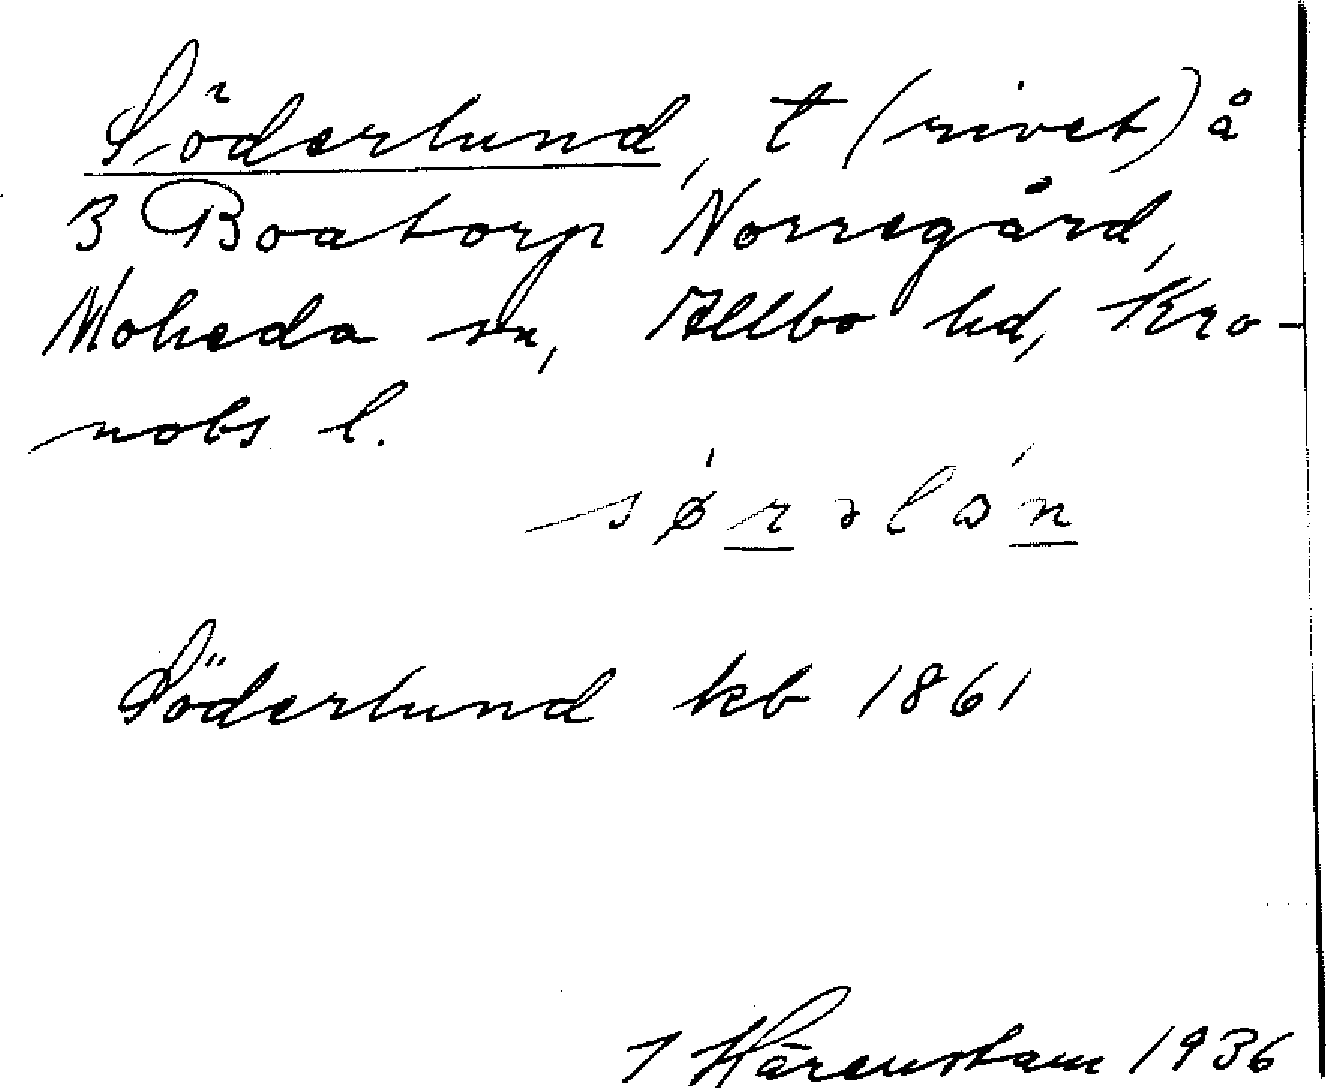 Söderlund, t (rivet) å
3 Boatorp Norregård,
Moheda sn, Allbo hd, Kro-
nobs l.
sǿrəlón
Söderlund kb 1861
J Härenstam 1936